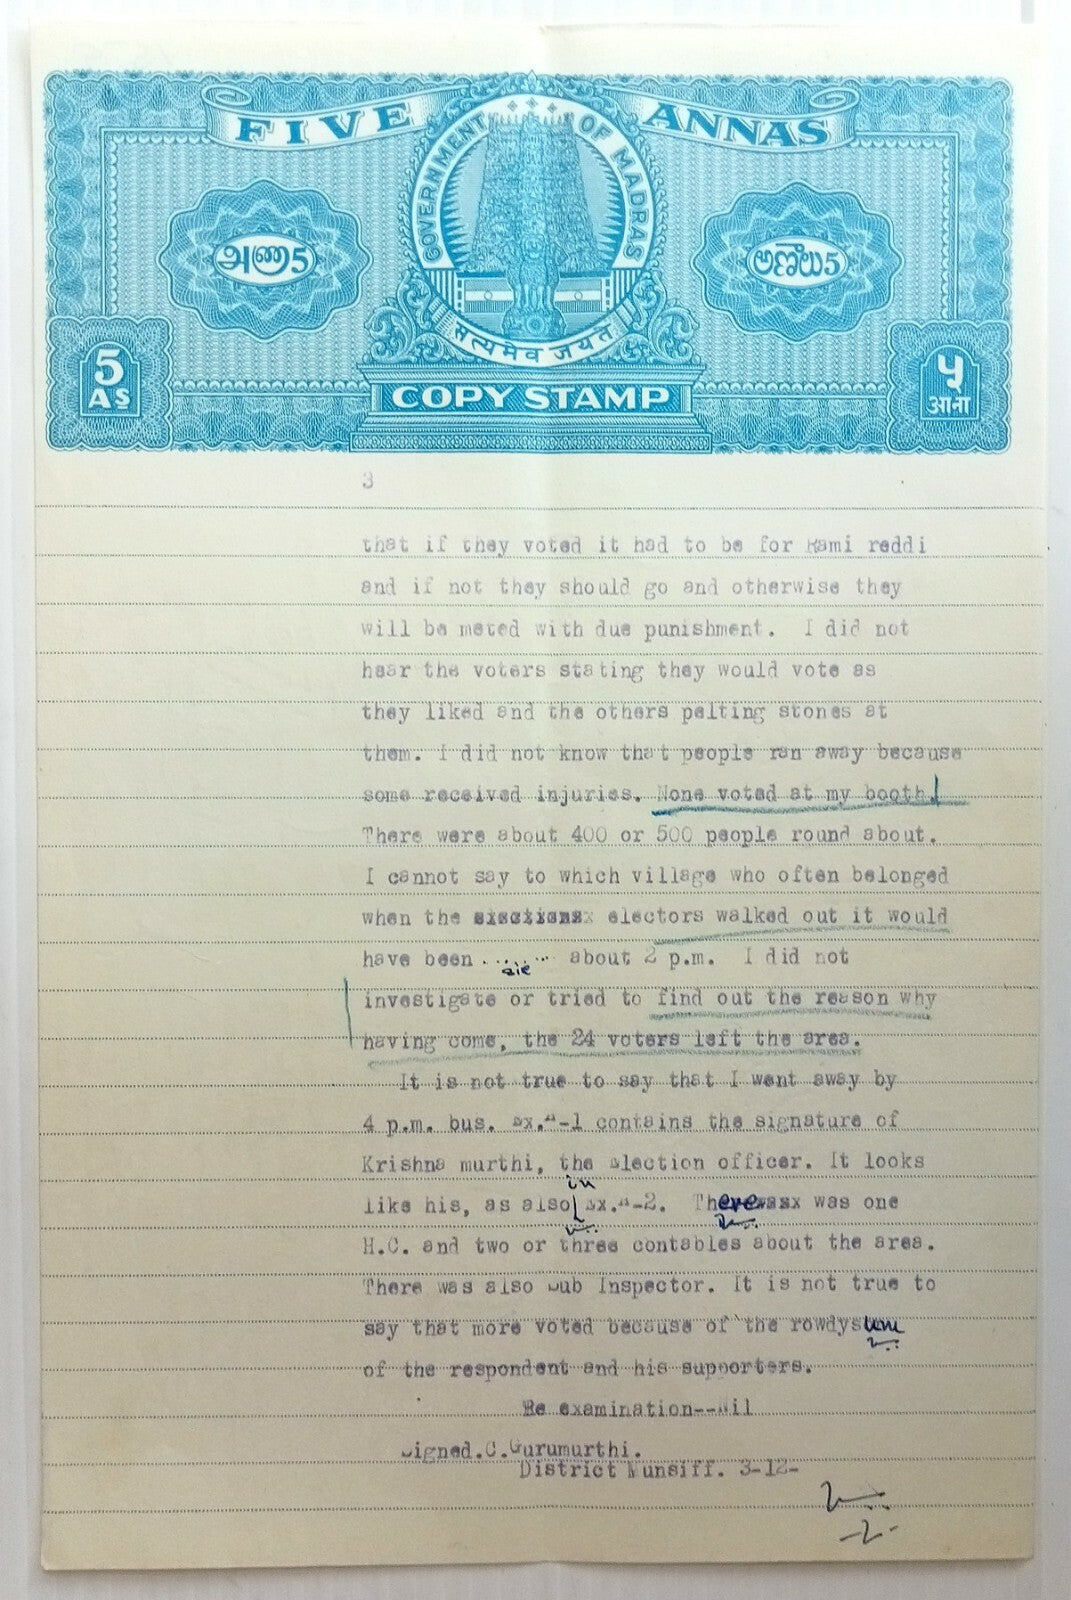 FIVE ANNAS
GOVERNMENT OF MADRAS
அணா5
అణాలు5
सत्यमेव जयते
5
AS
५
आना
COPY STAMP
3
that if they voted it had to be for Rami reddi
and if not they should go and otherwise they
will be meted with due punishment. I did not
hear the voters stating they would vote as
they liked and the others pelting stones at
them. I did not know that people ran away because
some received injuries. None voted at my booth.
There were about 400 or 500 people round about.
I cannot say to which village who often belonged
when the electors walked out it would
have been ...... about 2 p.m. I did not
sic
investigate or tried to find out the reason why
having come, the 24 voters left the area.
It is not true to say that I went away by
4 p.m. bus. Ex.A-1 contains the signature of
Krishna murthi, the election officer. It looks
in
like his, as also Ex.A-2. There was one
H.C. and two or three contables about the area.
There was also Sub Inspector. It is not true to
say that more voted because of the rowdysum
of the respondent and his supporters.
Re examination--Nil
Signed.C.Gurumurthi.
District Munsiff. 3-12-